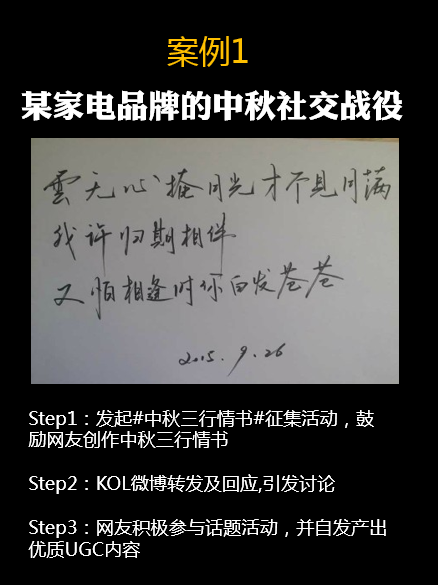 案例1
某家电品牌的中秋社交战役
雲无心掩月光才不见月满
我许归期相伴
又怕相逢时你白发苍苍
2015.9.26
Step1：发起#中秋三行情书#征集活动，鼓
励网友创作中秋三行情书
Step2：KOL微博转发及回应,引发讨论
Step3：网友积极参与话题活动，并自发产出
优质UGC内容